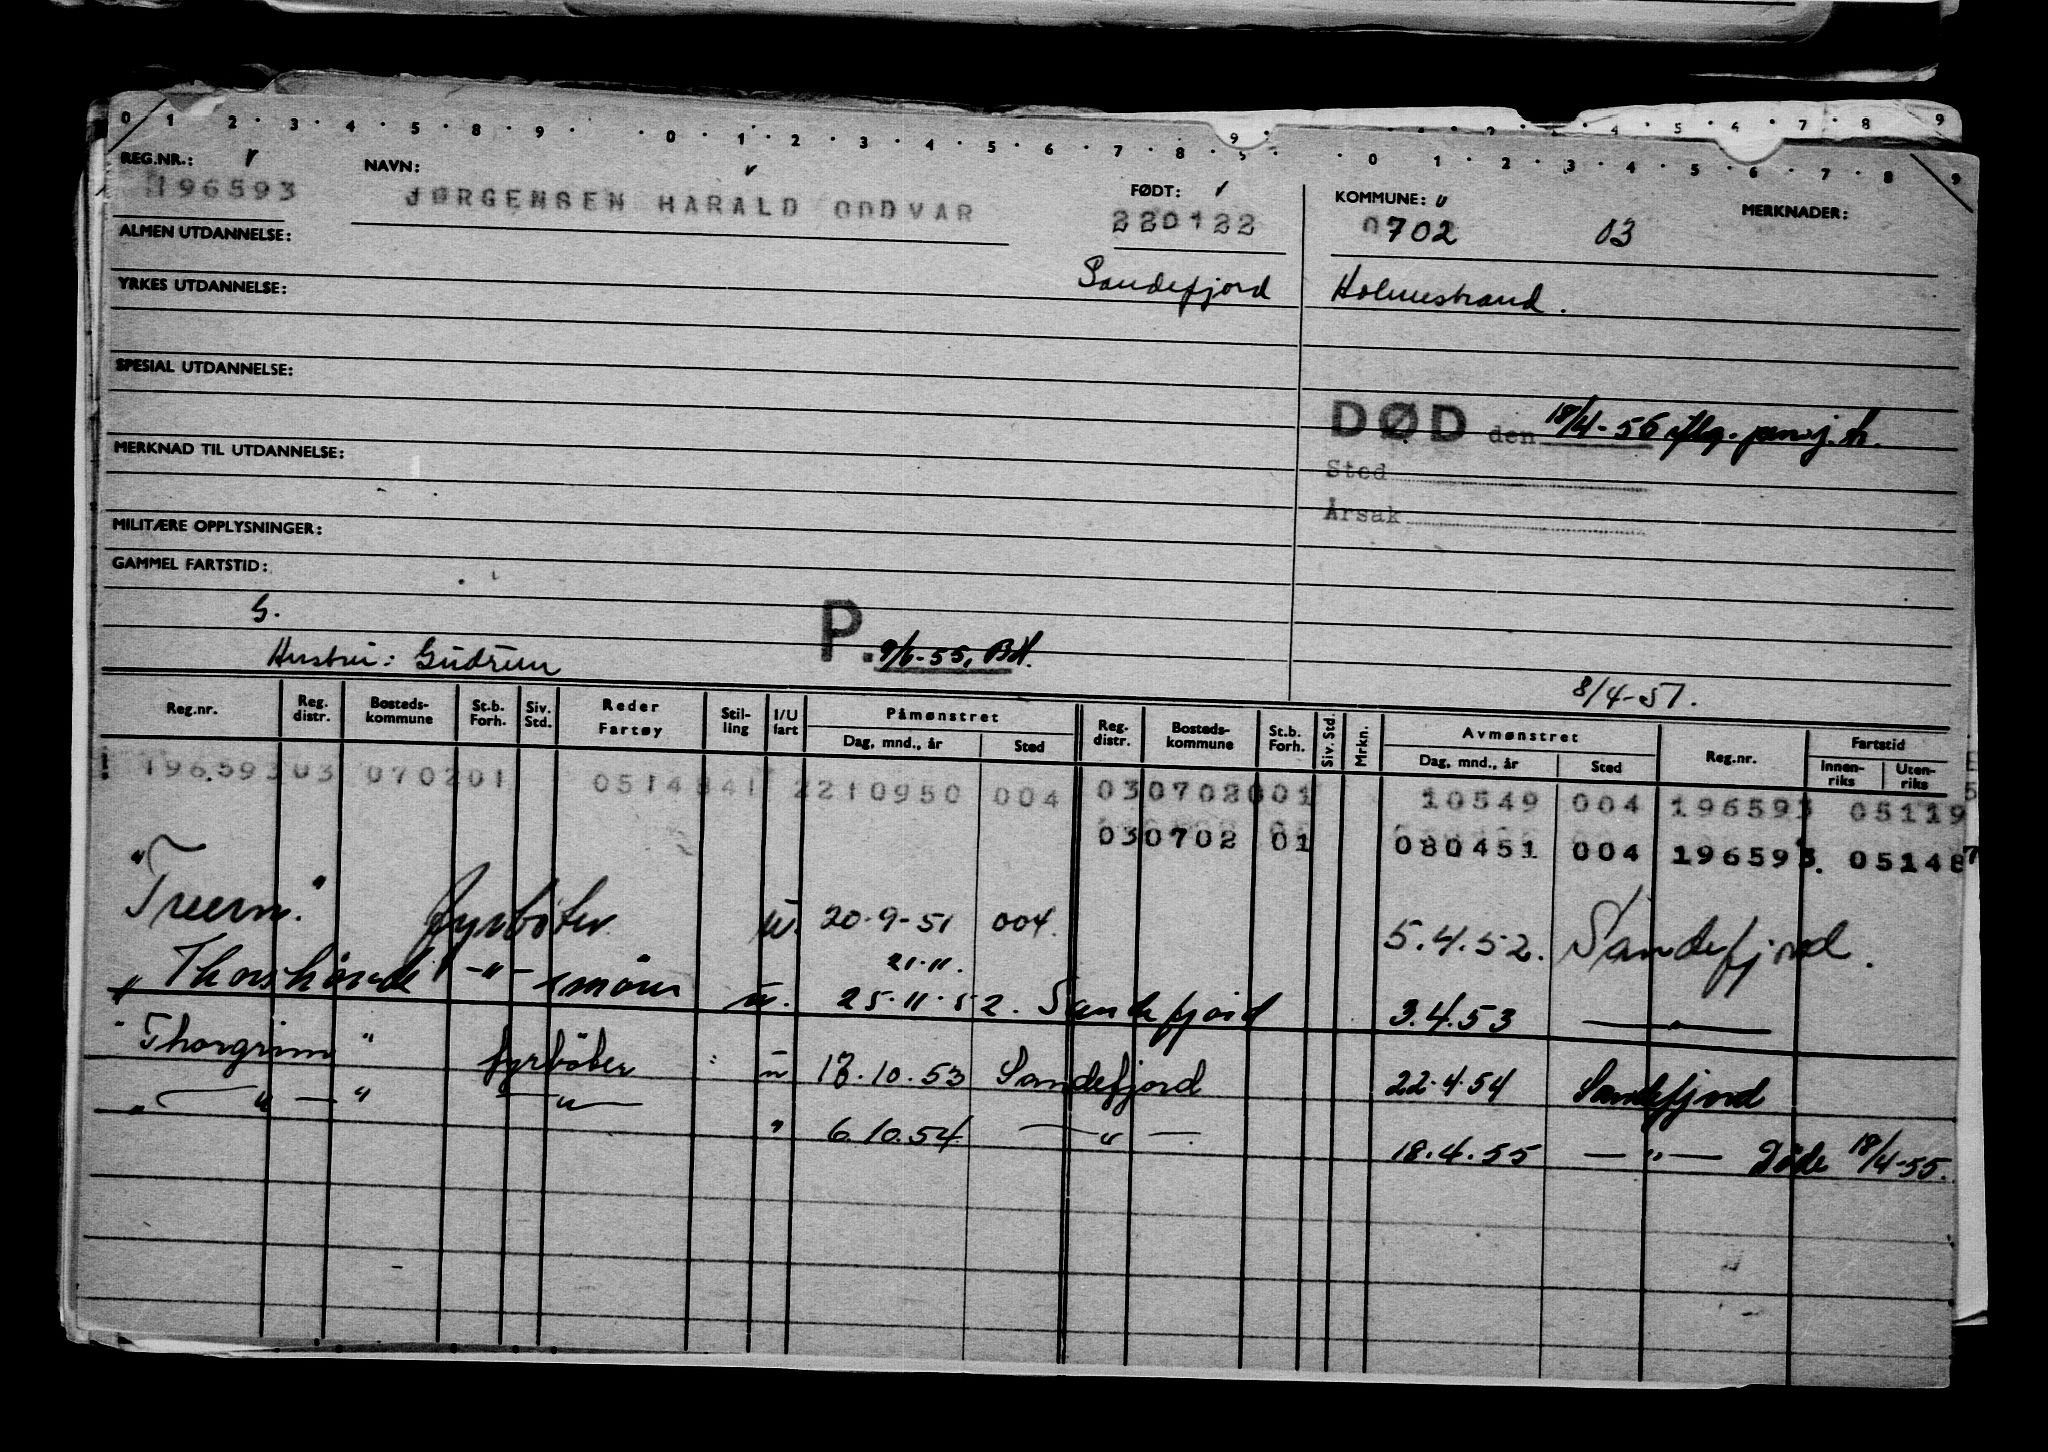 0 1 2 · 3 · 4 · 5 · 8 · 9 · · 0 · 1 · 2 · 3 · 4 · 5 · 6 · 7 · 8 · 9 · · 0 · 1 · 2 · 3 · 4 · 5 · 6 · 7 · 8 · 9
REG.NR.: NAVN: FØDT: KOMMUNE: MERKNADER:
196593 JØRGENSEN HARALD ODDVAR 220122 0702 03
ALMEN UTDANNELSE:
Sandefjord Holmestrand.
YRKES UTDANNELSE:
SPESIAL UTDANNELSE:
DØD den 18/4-56 iflg.
MERKNAD TIL UTDANNELSE:
Sted
Årsak
MILITÆRE OPPLYSNINGER:
GAMMEL FARTSTID:
G.
P. 9/6-55, BH.
Hustru: Gudrun
8/4-51.
Reg.nr. Reg. distr. Bosteds-kommune St.b. Forh. Siv. Std. Reder Fartøy Stil-ling I/U fart Påmønstret Dag, mnd., år Sted Reg. distr. Bosteds-kommune St.b. Forh. Siv. Std. Mrkn. Avmønstret Dag, mnd., år Sted Reg.nr. Fartstid Innen-riks Uten-riks
196593 03 0702 01 0514841 2210950 004 030702001 10549 004 196593 05119
030702 01 080451 004 196593. 05148
"Treern." fyrbøter u. 20-9-51 004. 5.4.52. Sandefjord.
21.11.
" Thorshövdi" -"- smörer u. 25.11.52. Sandefjord 3.4.53 — " —
" Thorgrim " fyrböter u 13.10.53 Sandefjord 22.4.54 Sandefjord
" — " — " — " — " 6.10.54 — " — 18.4.55 — " — Døde 18/4-55.